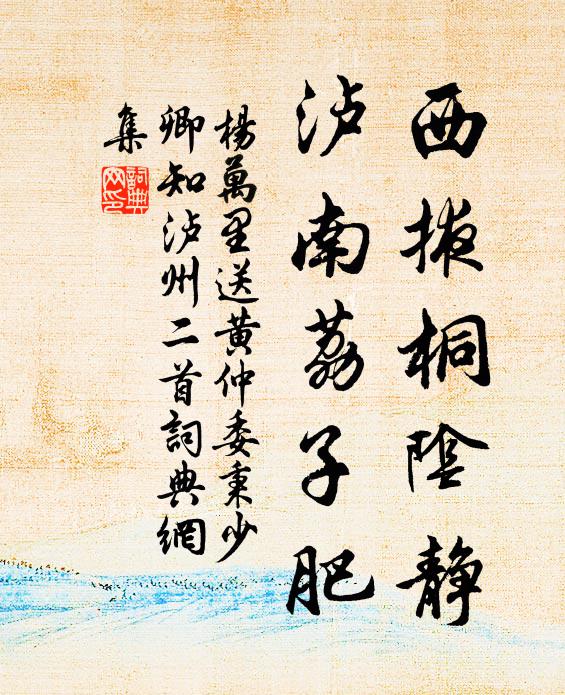 西掖桐陰静
泸南荔子肥
楊萬里送黄仲委秉少
卿知泸州二首詞典網
集
詞典
网印